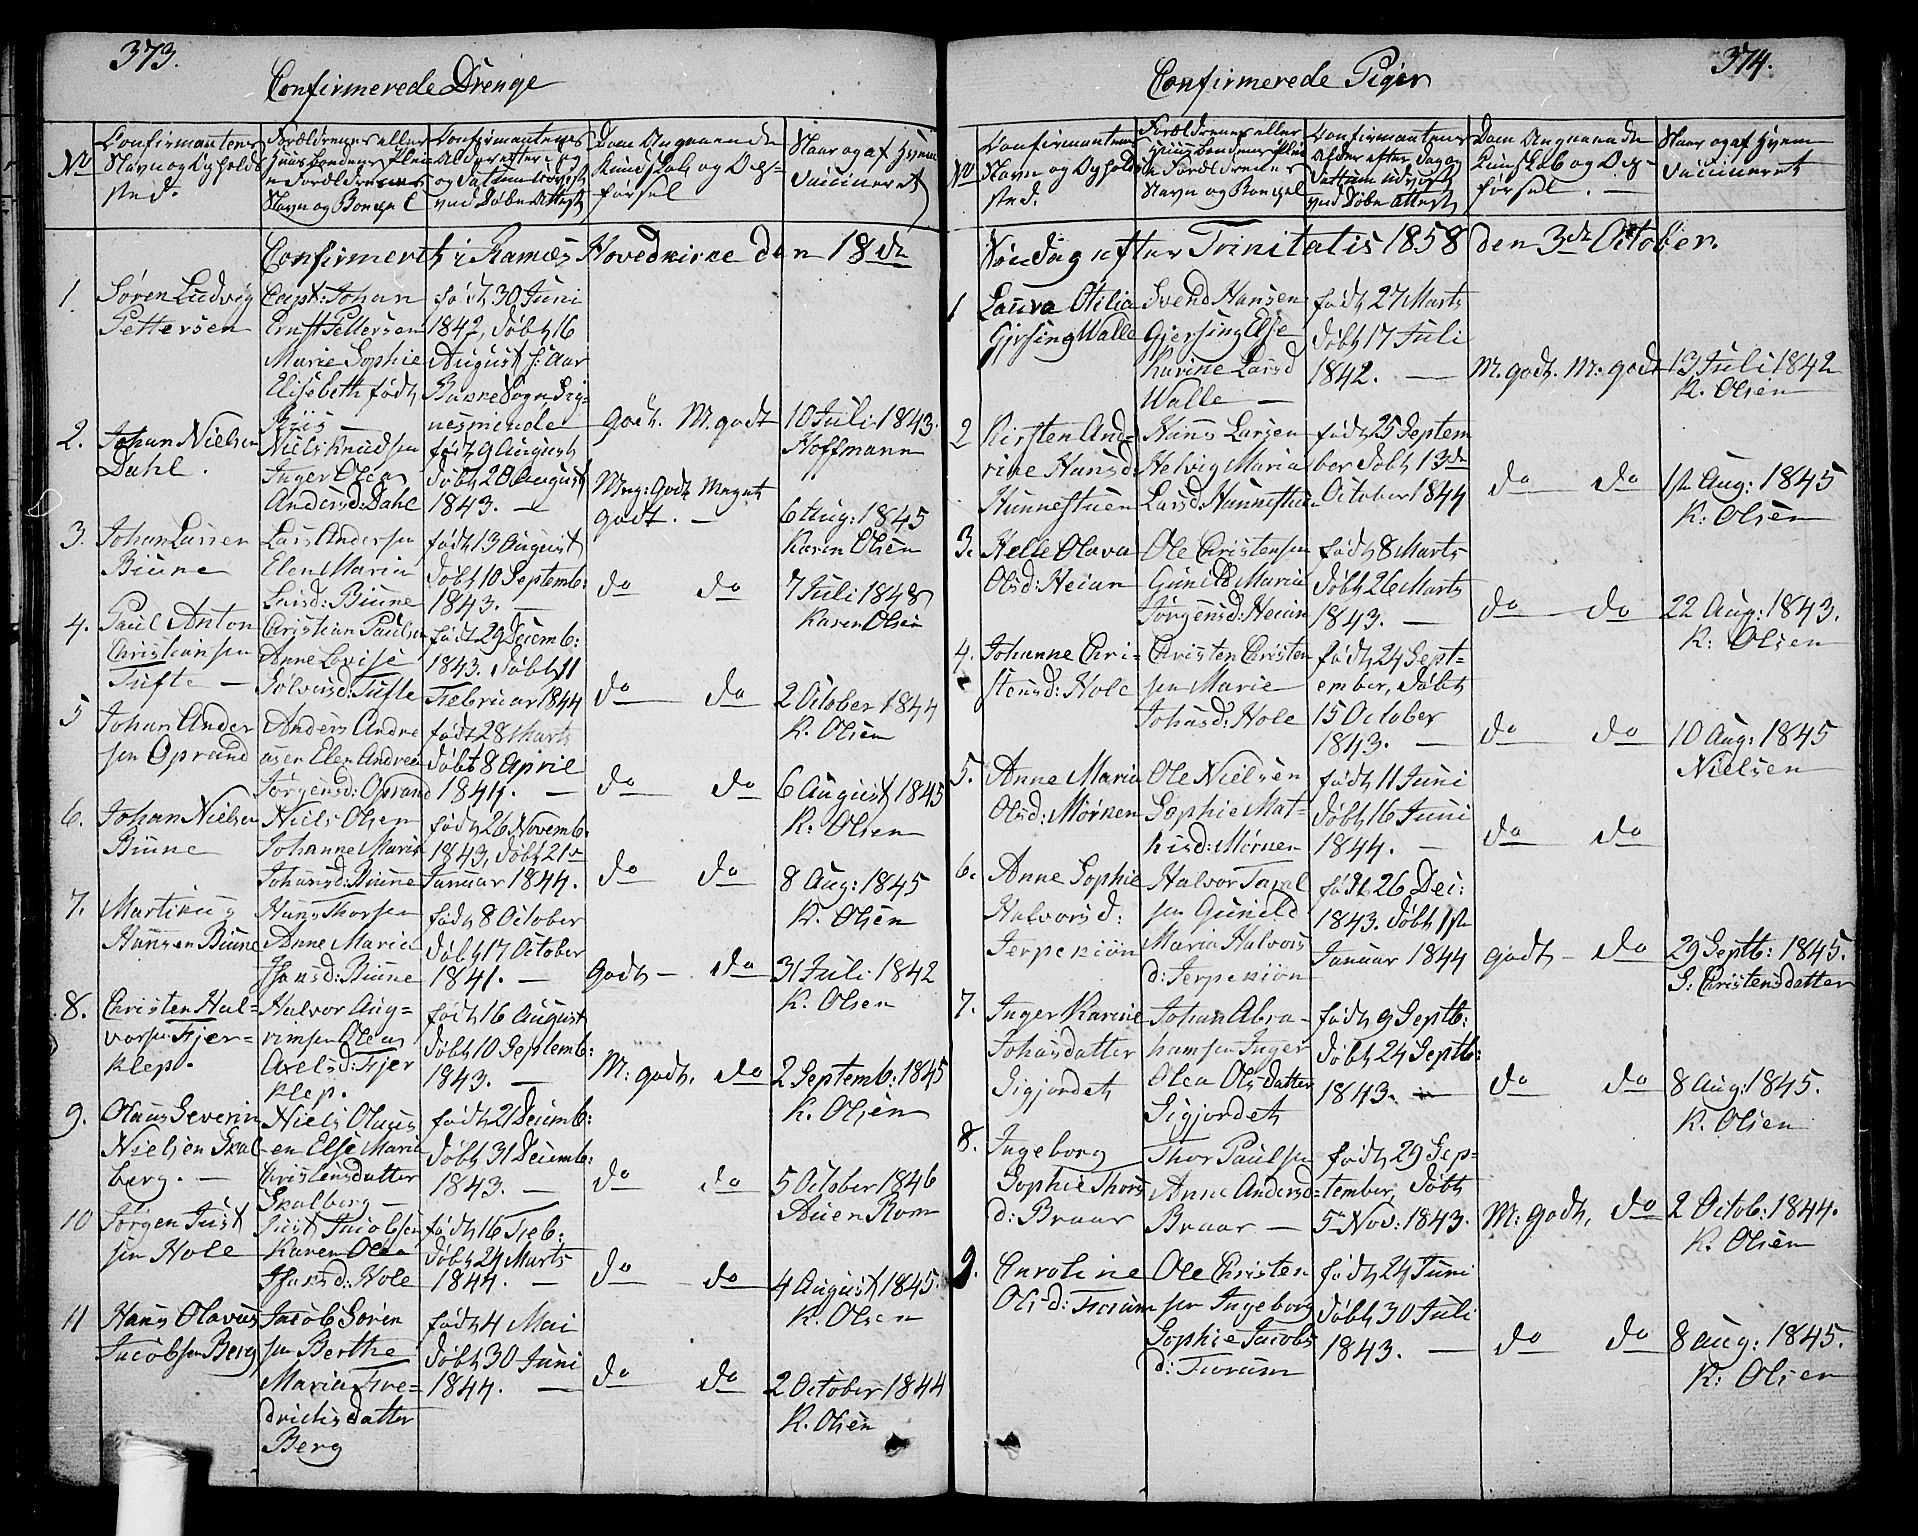 373.
Confirmerede Drenge
No
Confirmantens
Navn og Opholds
sted.
Forældrenes eller
Navn og Bopæl
Confirmantens
Alder efter
ved Døbe Attest
Dom Angaaende
Kundskab og Op-
førsel
Naar og af hvem
vaccineret
Confirmert i Ramnes Hovedkirke den 18de
1.
Søren Ludvig
Pettersen
Capt: Johan
Ernst Pettersen
Marie Sophie
Elisabeth født
Riis
født 30 Juni
1842, døbt 16
August s: Aar
nesminde
godt. M. godt
10 Juli 1843.
Hoffmann
2.
Johan Nielsen
Dahl.
Niels Knudsen
Inger Olea
Andersd: Dahl
født 9 August
døbt 20 August
1843. —
Meg: Godt Meget
godt. —
6 Aug: 1845
Karen Olsen
3.
Johan Larsen
Biune
Lars Andersen
Elen Maria
Larsd: Biune
født 13 August
døbt 10 Septemb:
1843. —
do do
7 Juli 1848
Karen Olsen
4.
Paul Anton
Christiansen
Tufte —
Christian Paulsen
Anne Lovise
Solvesd: Tufte
født 29 Decemb:
1843. døbt 11
Februar 1844
do do
2 October 1844
K. Olsen
5
Johan Ander
sen Oprand
Anders Andre
asen Elen Andrea
Jørgensd: Oprand
født 28 Marts
døbt 8 April
1844. —
do do
6 August 1845
K. Olsen
6.
Johan Nielsen
Biune
Niels Olsen
Johanne Maria
Johansd: Biune
født 26 Novemb:
1843, døbt 21de
Januar 1844.
do do
8 Aug: 1845
K. Olsen
7.
Martinus
Hansen Biune
Hans Thorsen
Anne Maria
Hansd: Biune
født 8 October
døbt 17 October
1841. —
Godt — do
31 Juli 1842
K. Olsen
8.
Christen Hal-
vorsen Fjer-
klep.
Halvor Ang-
rimsen Olea
Axelsd: Fjer
klep.
født 16 August
døbt 10 Septemb:
1843. —
M: godt, do
2 Septemb: 1845
K. Olsen
9.
Olaus Severin
Nielsen Skal
berg. —
Niels Olaus
en Else Maria
Christensdatter
Skalberg —
født 21 Decemb:
døbt 31 Decemb:
1843. —
do do
5 October 1846
Auen Rom
10
Jørgen Just
sen Hole
Just Jacobsen
Karen Olea
Hansd: Hole
født 16 Feb:
døbt 24 Marts
1844. —
do do
4 August 1845.
K. Olsen
11
Hans Olavus
Jacobsen Berg
Jacob Søren
sen Berthe
Maria Fre-
drichsdatter
Berg
født 4 Mai
døbt 30 Juni
1844. —
do do
2 October 1844
K. Olsen
374.
Confirmerede Piger
No
Confirmantens
Navn og Opholds
sted.
Forældrenes eller
Navn og Bopæl
Confirmantens
Alder efter Dag og
Datum udvist
ved Døbe Attest
Dom Angaaende
Kundskab og Op-
førsel. —
Naar og af hvem
vaccineret
Søndag efter Trinitatis 1858 den 3de October.
1
Laura Otilia
Gjersing Walle
Svend Hansen
Gjersing Else
Karine Larsd
Walle —
født 27 Marts
døbt 17 Juli
1842. —
M. godt. M: godt
13 Juli 1842
K. Olsen
2
Kirsten And-
rine Hansd:
Hunnestuen
Hans Larsen
Helvig Maria
Larsd: Hunnestue
født 25 Septem
ber døbt 13de
October 1844
do do
1st Aug: 1845
K: Olsen
3.
Helle Olava
Olsd: Heian
Ole Christensen
Gunild Maria
Jørgensd: Heian
født 8 Marts
døbt 26 Marts
1843. —
do do
22 Aug: 1843.
K: Olsen
4.
Johanne Chri-
stensd: Hole
Christen Christen
sen Marie
Johasd: Hole
født 24 Sept-
ember, døbt
15 October
1843. —
do do
10 Aug: 1845
Nielsen
5.
Anne Maria
Olsd: Mørken
Ole Nielsen
Sophie Mat-
hisd: Mørken
født 11 Juni
døbt 16 Juni
1844. —
do do
6.
Anne Sophie
Halvorsd:
Jerpekiøn
sen Gunild
Maria Halvors
d: Jerpekiøn
født 26 Dec:
1843. døbt 1st
Januar 1844
godt — do
29 Septb: 1845.
G: Christensdatter
7.
Inger Karine
Johasdatter
Sigjordet
Johan Abra-
hamsen Inger
Olea Olsdatter
Sigjordet
født 9 Septb:
døbt 24 Septb:
1843. —
do do
8 Aug: 1845.
K. Olsen
8.
Ingeborg
Sophie Thors
d: Braar
Thor Paulsen
Anne Andersd
Braar —
født 29 Sep-
tember, døbt
5te Nov: 1843.
M: godt, do
2 Octob: 1844.
K. Olsen
9.
Caroline
Olsd: Fiorum
Ole Christen
sen Ingeborg
Sophie Jacobs
d: Fiorum
født 24 Juni
døbt 30 Juli
1843. —
do do
8 Aug: 1845.
K: Olsen